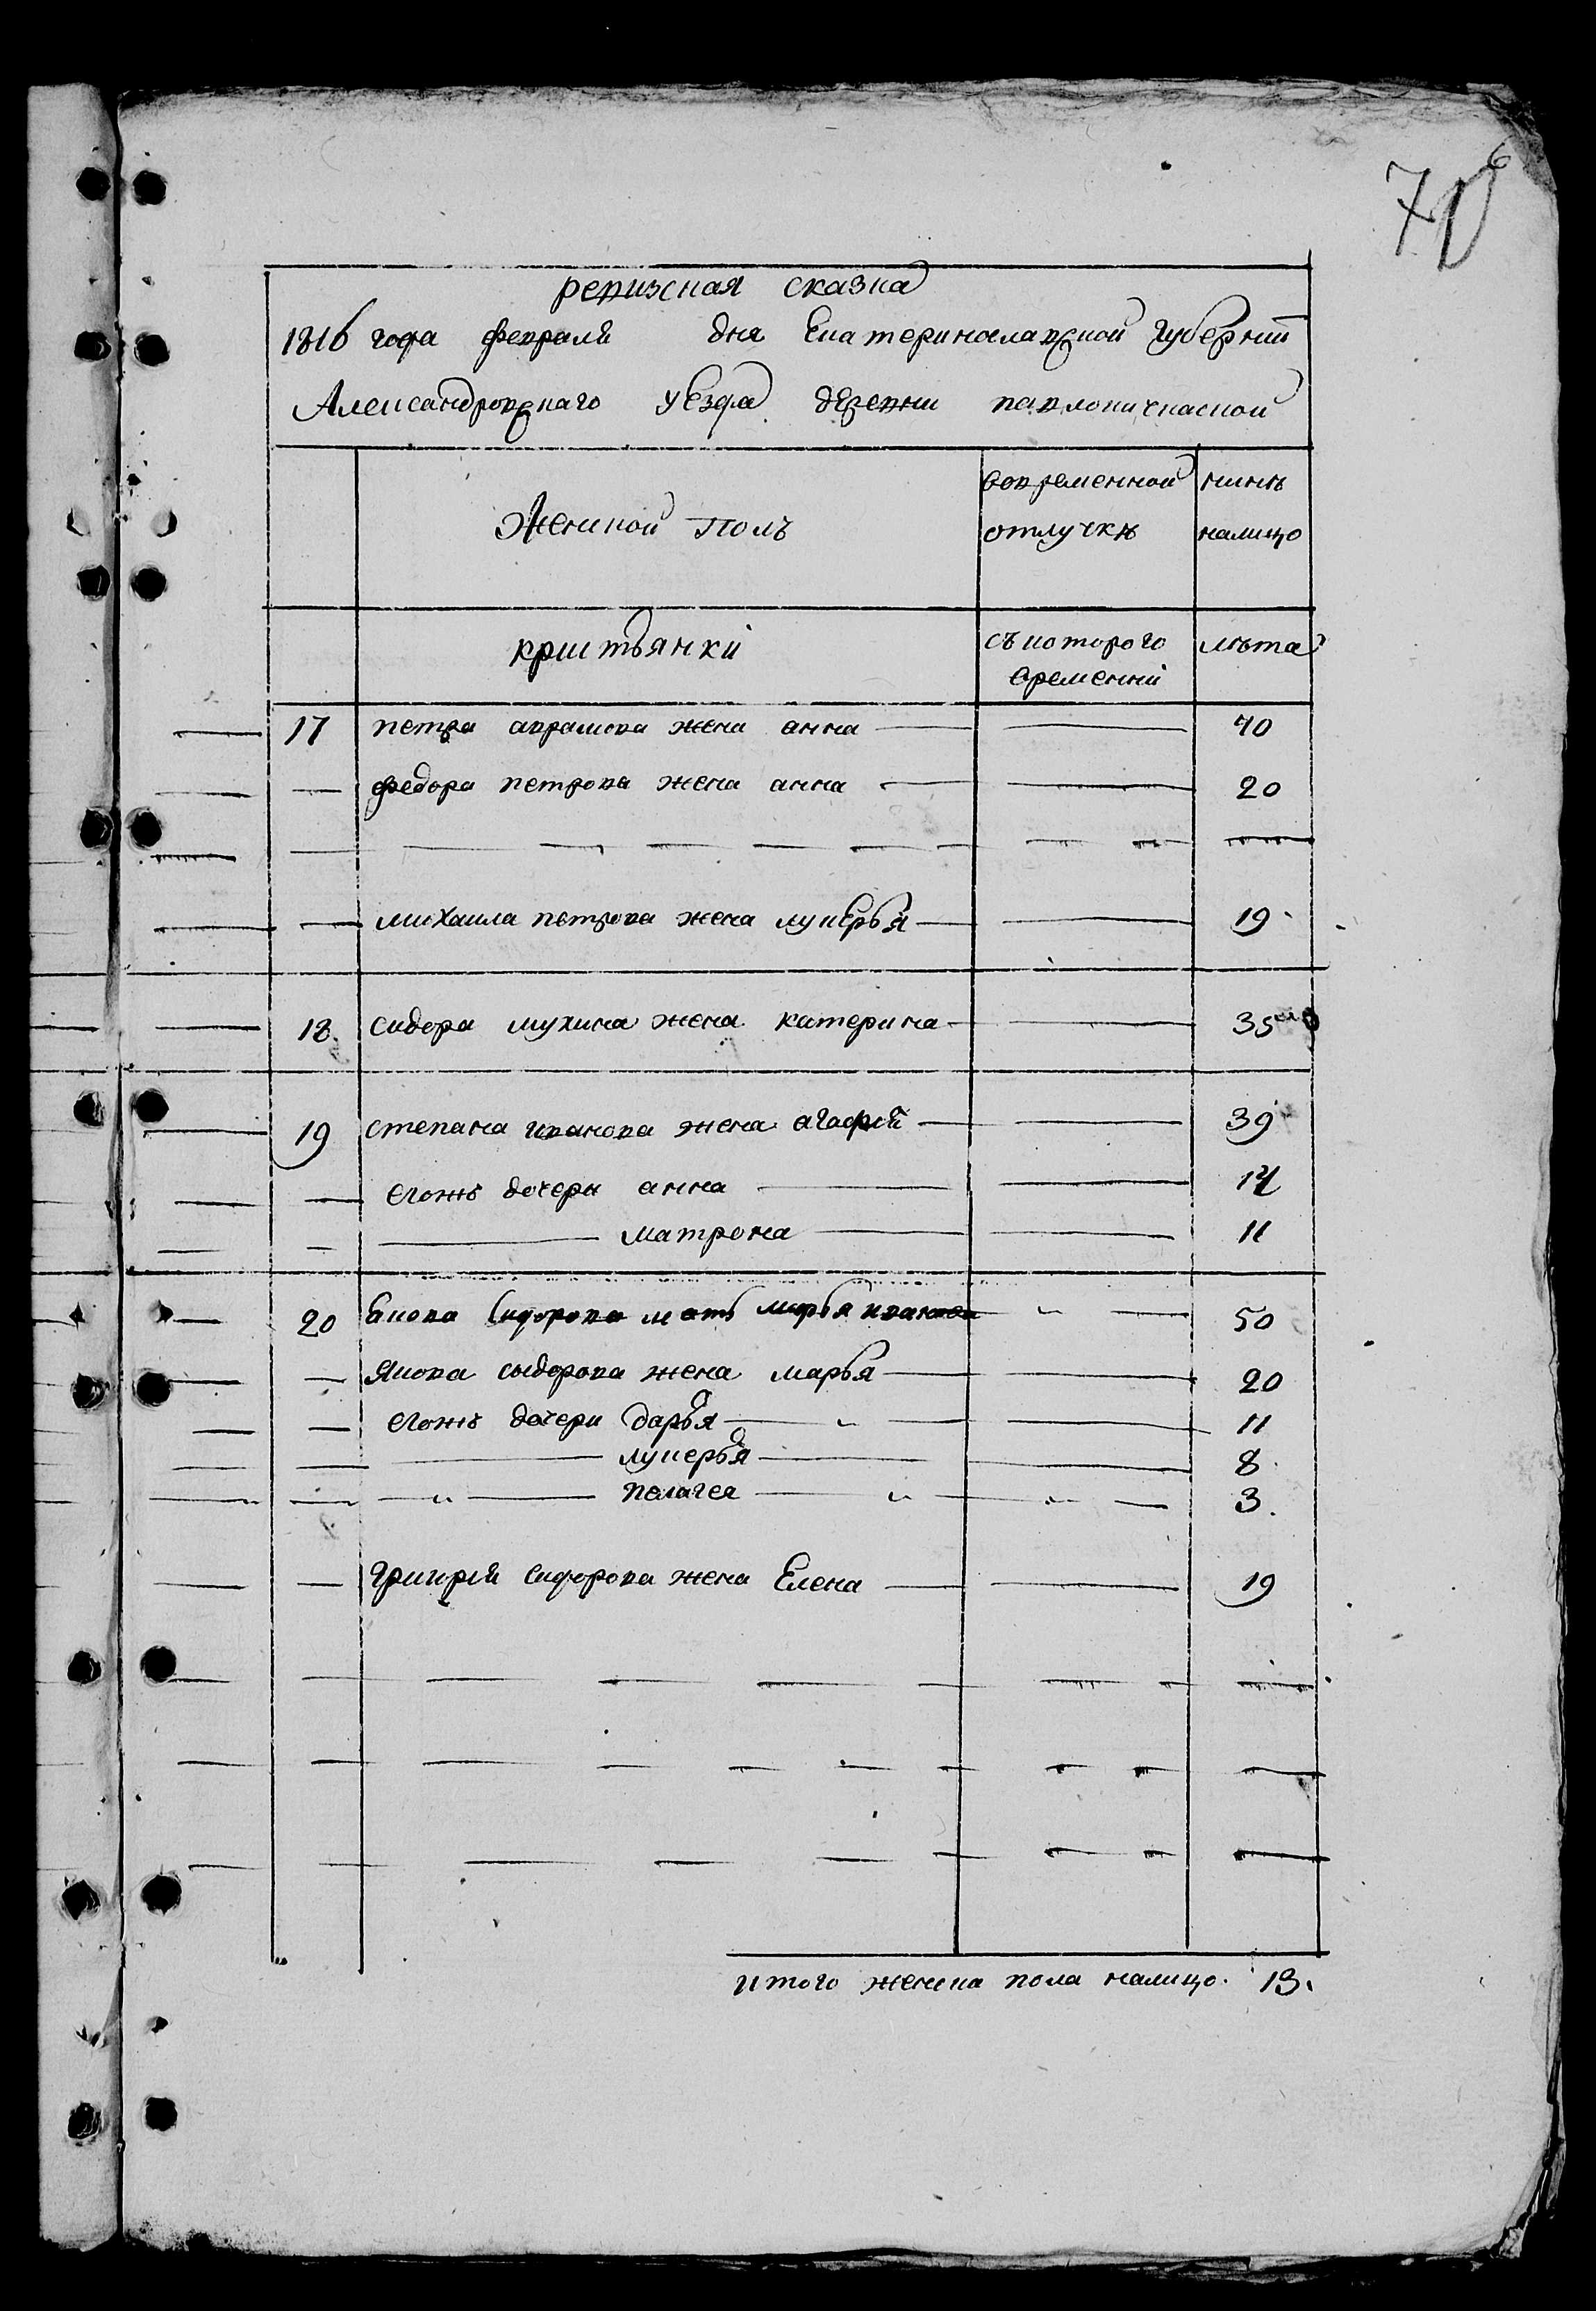 70
ревизская сказка
1816 года февраля дня Екатеринославской Губернии
Александровскаго уезда деревни
женской полъ
вовременной отлучкѣ
нынѣ налицо
кристьянкі
съ которого временни
лѣта
17 петра аврамова жена анна 40
федора петрова жена анна 20
михаила петрова жена лукерья 19
18 сидора мухина жена катерина 35
19 степана иванова жена агафия 39
егожъ дочери анна 14
матрона 11
20 Якова Сидорова мать марья иванова 50
Якова сыдорова жена марья 20
егожъ дочери дарья 11
лукерья 8
пелагея 3
григория сидорова жена Елена 19
итого женска пола налицо. 13.